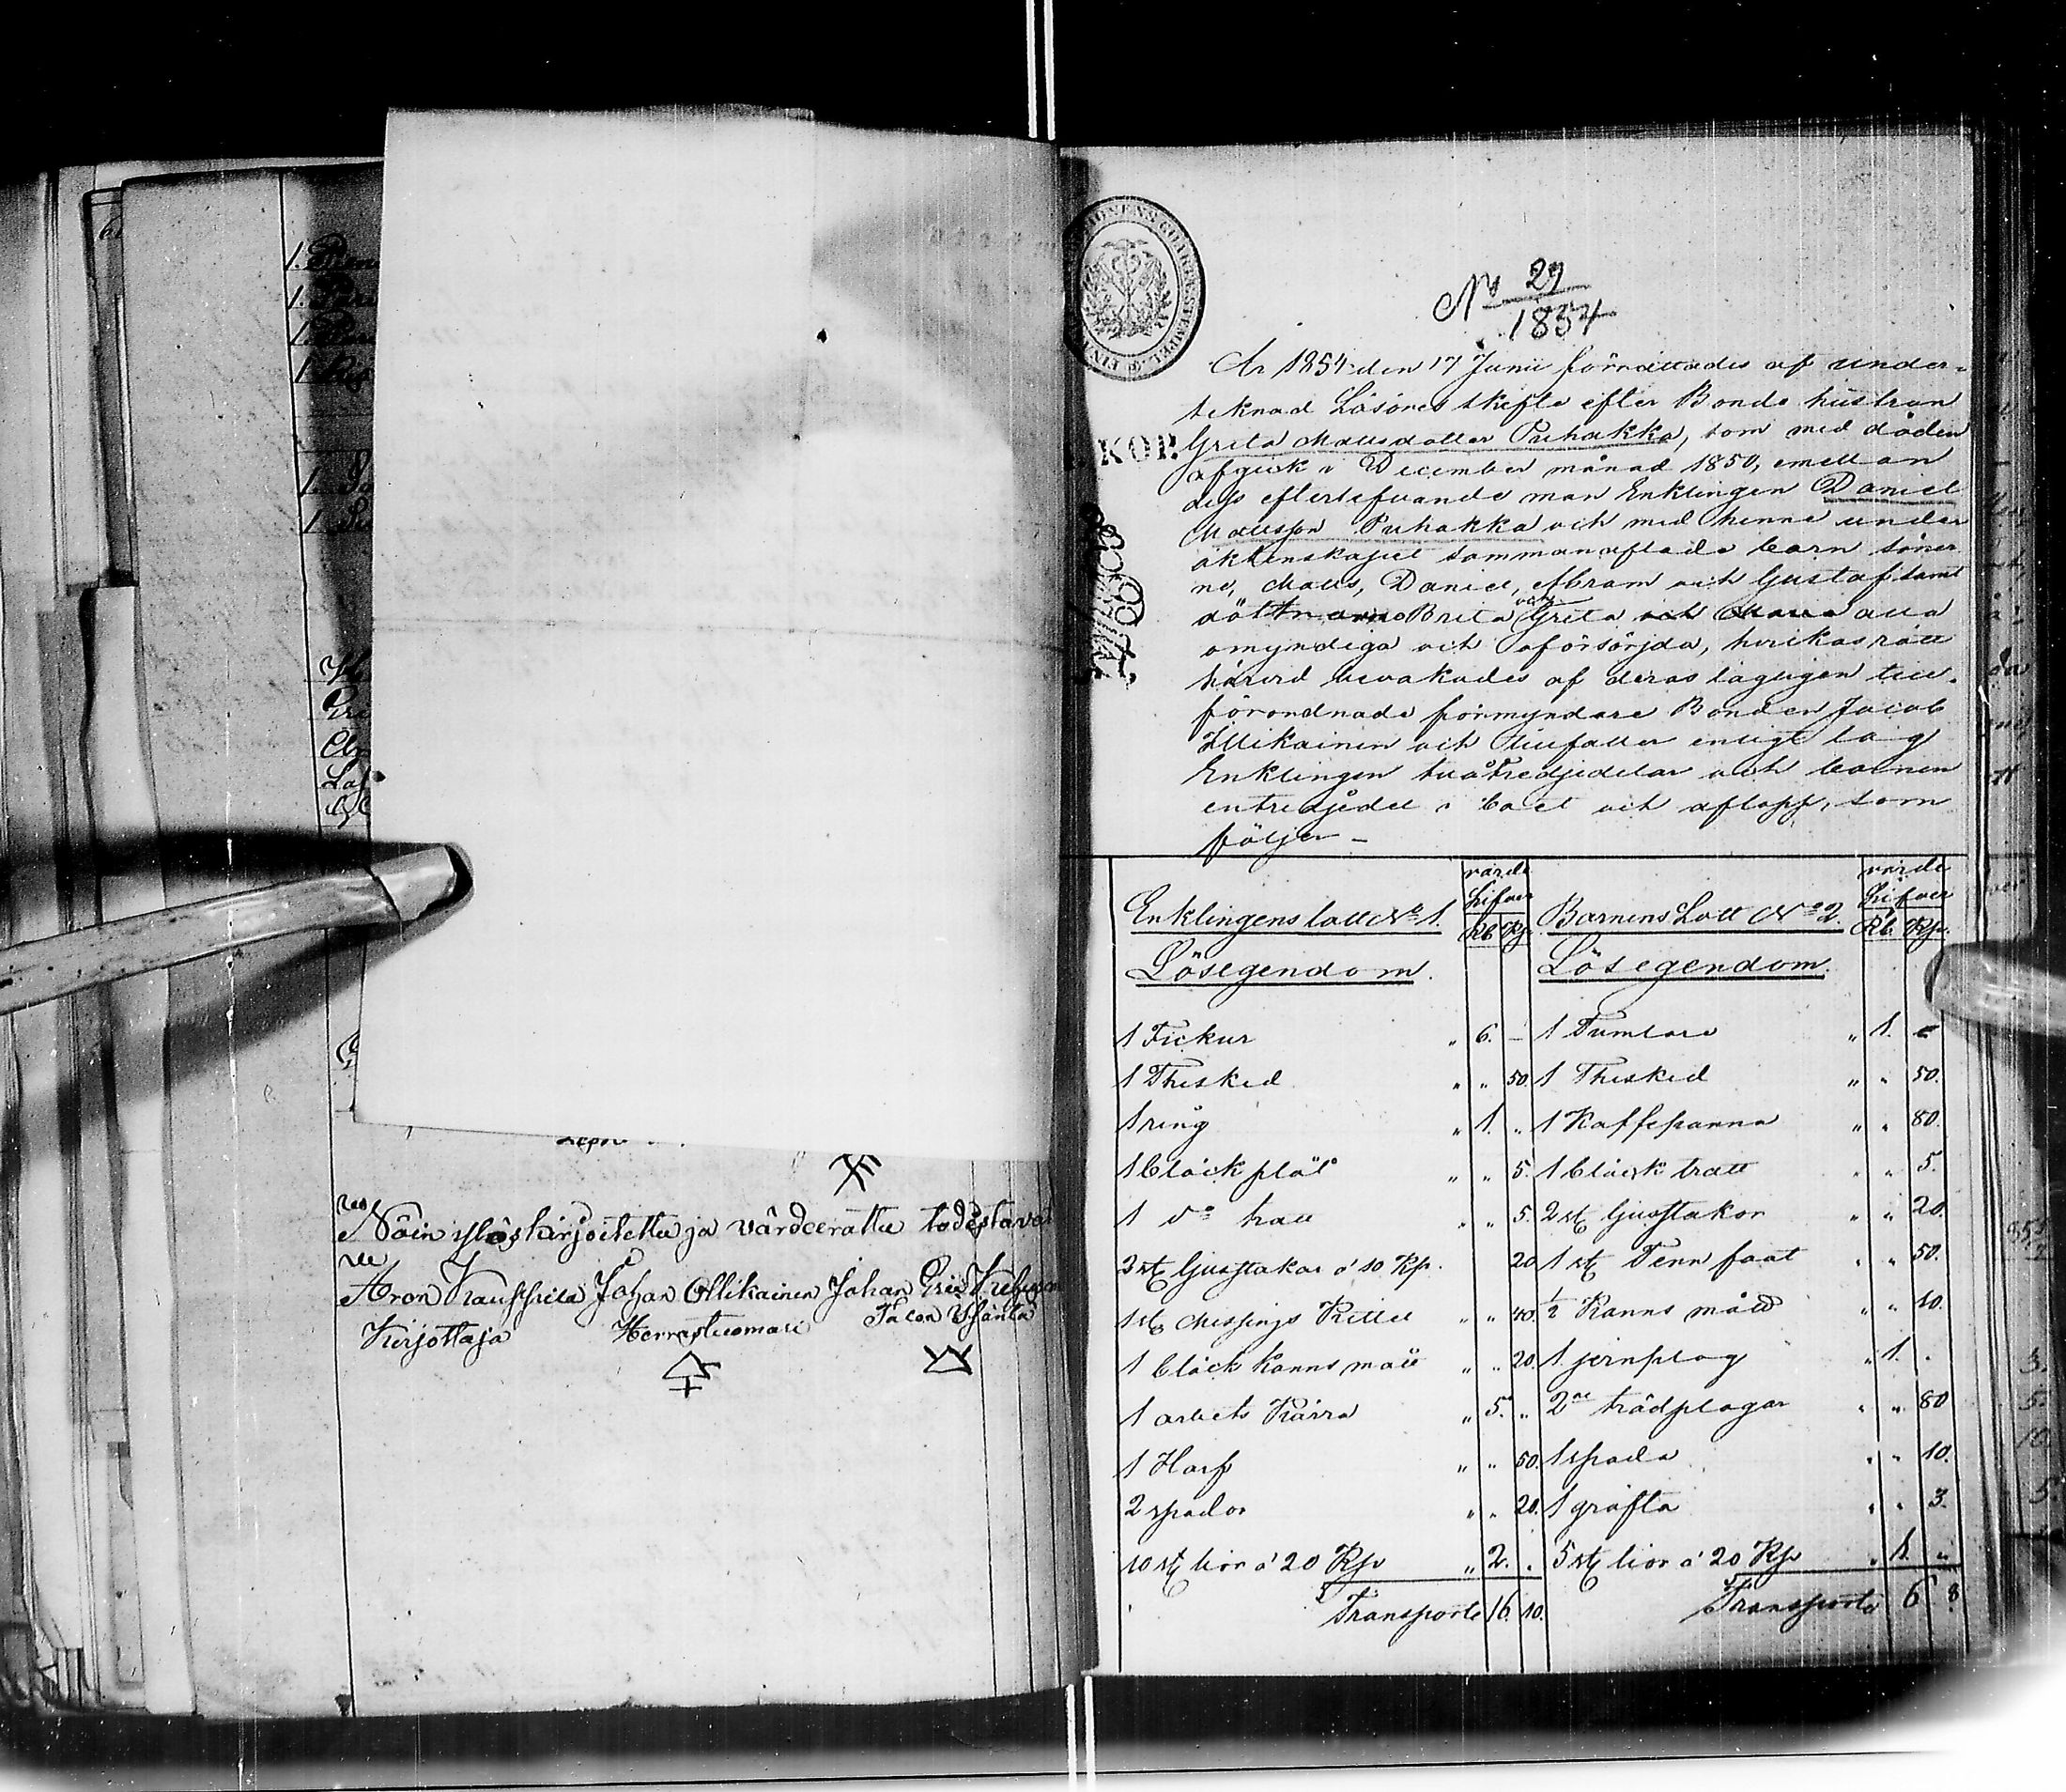 Näin ylös kirjoitettu ja värdeerattu todistavat
Aron Johan Ollikainen Johan
Kirjottaja Herrastuomari
No 27
1854
År 1854 den 17 Junii förrättades af under-
teknad Lösöres skifte efter Bonde hustrun
Greta Mattsdotter Puhakka, som med döden
afgick i December månad 1850, emellan
dess efterlefvande man Enklingen Daniel
Mattsson Puhakka och med henne under
äktenskapet sammanaflade barn söner
ne, Matts, Daniel, Abram och Gustaf samt
döttrarne Brita och Greta och Maria alla
omyndiga och oförsörjda, hvilkas rätt
härvid bevakades af deras lagligen till-
förordnade förmyndare Bonden Jacob
Ollikainen och tillfaller enligt lag
Enklingen tvåtredjedelar och barnen
entredjedel i boet och aflopp, som
följer –
Enklingens lott No 1. värde Silfver Rb Kp. Barnens Lott No 2. värde Silfver Rb. Kp.
Lösegendom. Lösegendom.
1 Fickur " 6. – 1 Tumlare " 1. –
1 Thesked " " 50. 1 Thesked " " 50.
1 ring " 1. " 1 Kaffepanna " " 80.
1 bläck plåt " " 5. 1 bläck tratt " " 5.
1 do tratt " " 5. 2 st ljusstakor " " 20.
3 st ljusstakar á 10 Kp. 20 1 st Tenn faat " " 50.
1 st Messings Kittel " " 40. 1/2 Kanns mått " " 10.
1 bläck Kanns mått " " 20. 1 jernplog " 1. "
1 arbets Kärra " 5. " 2ne trädplogar " " 80
1 Harf " " 50. 1 spada " " 10.
2 spador " " 20. 1 gräfta " " 3.
10 st lior á 20 Kp " 2. " 5 st lior á 20 Kp " 1. "
Transporte 16. 10. Transporte 6 8